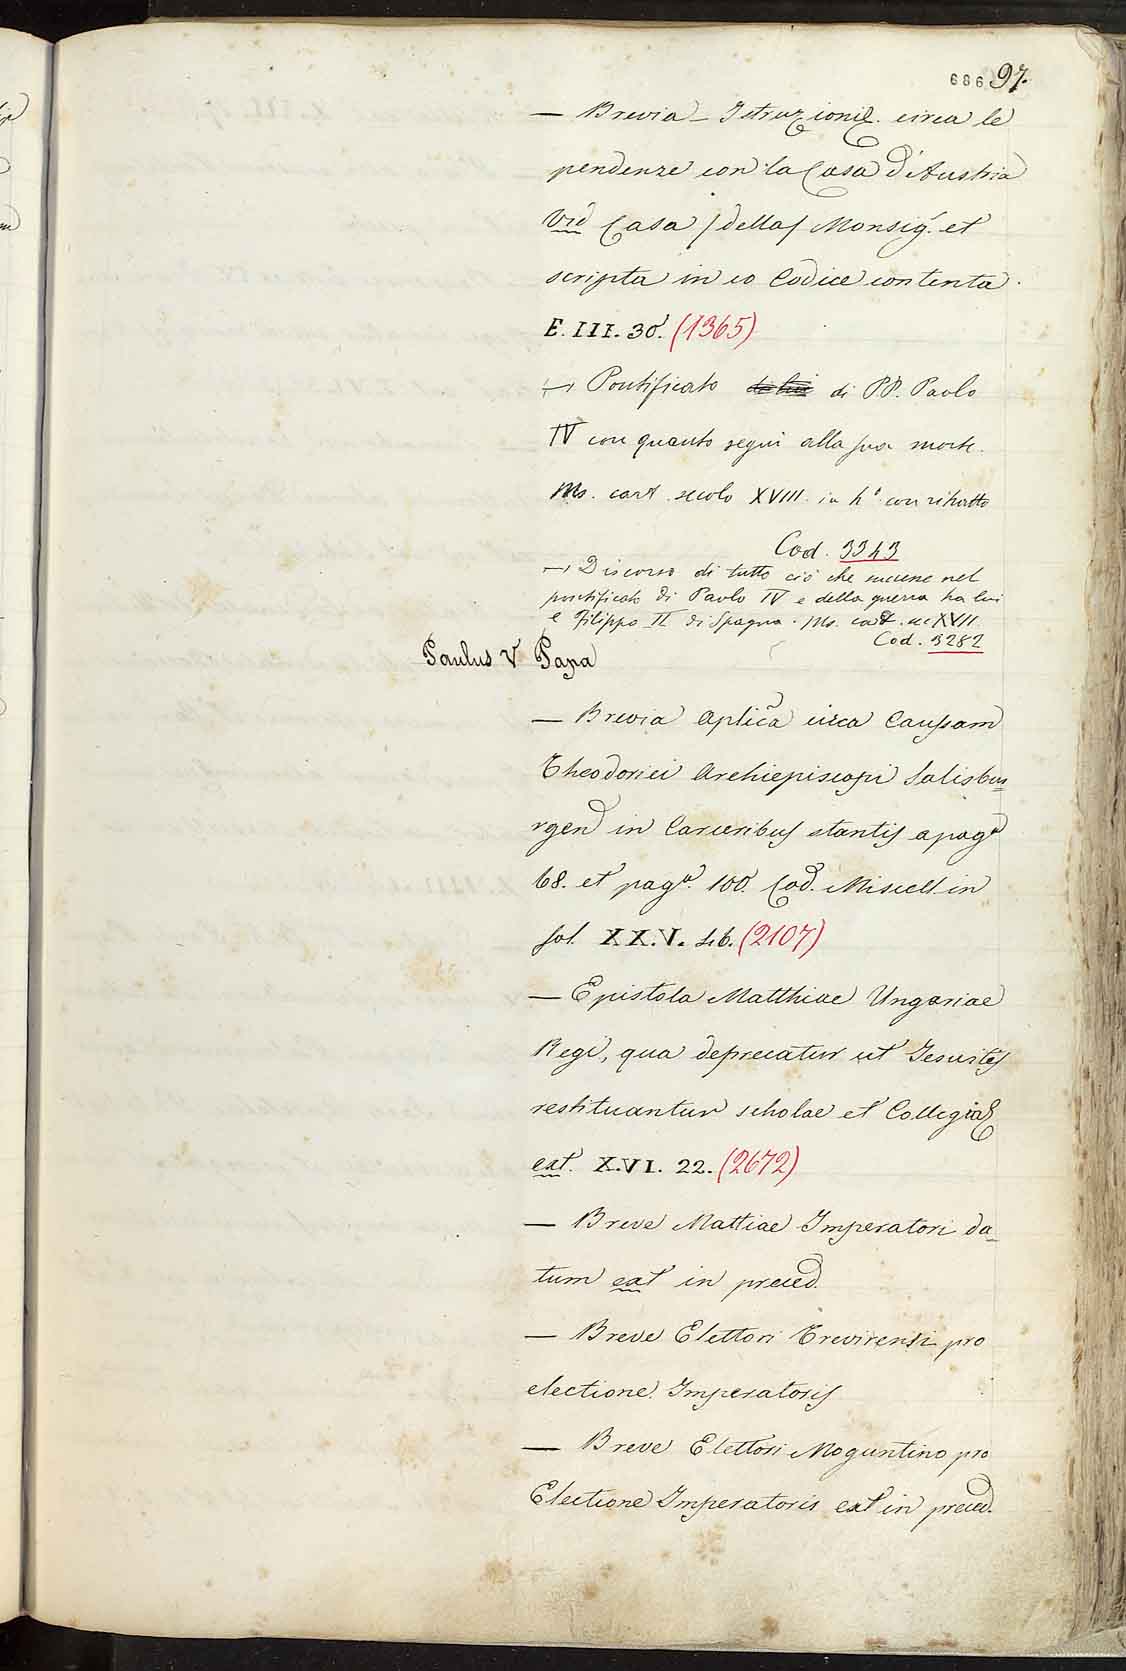 686 97.
— Brevia — Istruzioni &. circa le
pendenze con la Casa d'Austria
Vid Casa /della/ Monsig.r et
scripta in eo Codice contenta.
E. III. 30. (1365)
— Pontificato di PP. Paolo
IV con quanto seguì alla sua morte.
Ms. cart. secolo XVIII. in 4° con ritratto
Cod. 3343
— Discorso di tutto ciò che successe nel
pontificato di Paolo IV e della guerra tra lui
e Filippo II di Spagna. Ms. cart. sec XVII.
Cod. 3282
Paulus V Papa
— Brevia Aplica circa Caussam
Theodorici Archiepiscopi Salisbu=
rgen in Carceribus stantis a pag.a
68. et pag.a 100. Cod. Miscell. in
fol. XX.V. 46. (2107)
— Epistola Matthiae Ungariae
Regi, qua deprecatur ut Jesuitis
restituantur scholae et Collegia &
ext. X.VI. 22. (2672)
— Breve Mattiae Imperatori da=
tum ext in preced.
— Breve Elettori Trevirensi pro
electione Imperatoris
— Breve Elettori Moguntino pro
Electione Imperatoris ext in preced.